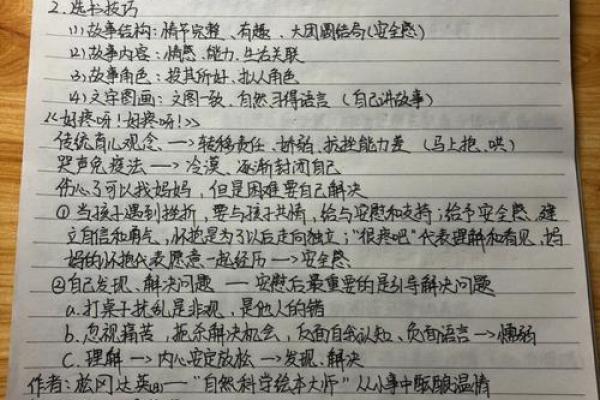 2.选书技巧
(1)故事结构：情节完整、有趣、大团圆结局(安全感)
(2)故事内容：情感、能力、生活关联
(3)故事角色：投其所好、拟人角色
(4)文字图画：文图一致、自然习得语言（自己讲故事）
《好疼呀！好疼呀！》
传统育儿观念 —> 转移责任、娇弱、抗挫能力差（马上抱、哄）
哭声免疫法 —> 冷漠、逐渐封闭自己
伤心了可以找妈妈，但是困难要自己解决
①当孩子遇到挫折，要与孩子共情，给与安慰和支持；给予安全感、建
立自信和勇气，怀抱是为了以后走向独立；“很疼吧”代表理解和看见，妈
妈的怀抱代表愿意一起经历 —> 安全感
②自己发现、解决问题 — 安慰后最重要的是引导解决问题
a.打桌子扰乱是非观，是他人的错
b.忽视痛苦，扼杀解决机会，反面自我认知、负面语言 —> 懦弱
c.理解 —> 内心安定放松 —> 发现、解决
作者：松冈达英(日) — “自然科学绘本大师”从小事中酝酿温情